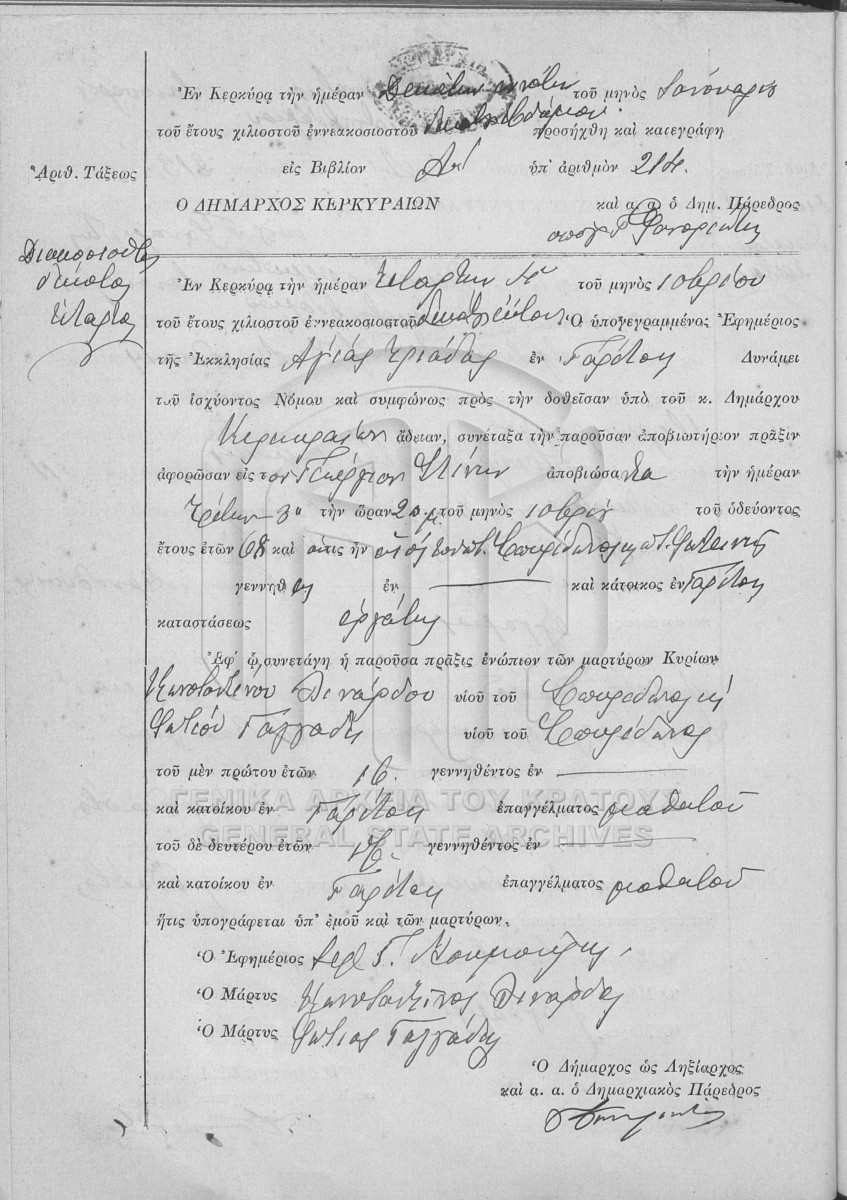 Ἐν Κερκύρᾳ τὴν ἡμέραν Δεκάτην τοῦ μηνὸς Ἰανουαρίου
τοῦ ἔτους χιλιοστοῦ ἐννεακοσιοστοῦ προσήχθη καὶ κατεγράφη
Ἀριθ. Τάξεως
εἰς Βιβλίον Αον ὑπ' ἀριθμὸν 214.
Ο ΔΗΜΑΡΧΟΣ ΚΕΡΚΥΡΑΙΩΝ
καὶ α. α. ὁ Δημ. Πάρεδρος
Διακοσιοστὸς
δέκατος
τέταρτος
Ἐν Κερκύρᾳ τὴν ἡμέραν Τετάρτην 4η τοῦ μηνὸς 10βρίου
τοῦ ἔτους χιλιοστοῦ ἐννεακοσιοστοῦ Ὁ ὑπογεγραμμένος Ἐφημέριος
τῆς Ἐκκλησίας Ἁγίας Τριάδος ἐν Γαρίτσῃ Δυνάμει
τοῦ ἰσχύοντος Νόμου καὶ συμφώνως πρὸς τὴν δοθεῖσαν ὑπὸ τοῦ κ. Δημάρχου
Κερκυραίων ἄδειαν, συνέταξα τὴν παροῦσαν ἀποβιωτήριον πρᾶξιν
ἀφορῶσαν εἰς τον Γεώργιον ἀποβιώσαντα τὴν ἡμέραν
Τρίτην 3η τὴν ὥραν 2 μ.μ. τοῦ μηνὸς 10βρίου τοῦ ὁδεύοντος
ἔτους ἐτῶν 68 καὶ ὅστις ἦν υἱὸς τοῦ ποτ. Σπυρίδωνος καὶ ποτ. Φωτεινῆς
γεννηθείς ἐν καὶ κάτοικος ἐν Γαρίτσῃ
καταστάσεως ἐργάτης
Ἐφ' ᾧ συνετάγη ἡ παροῦσα πρᾶξις ἐνώπιον τῶν μαρτύρων Κυρίων
Κωνσταντίνου Δινάρδου υἱοῦ τοῦ Σπυρίδωνος καὶ
Φωτίου Γαγγάδη υἱοῦ τοῦ Σπυρίδωνος
τοῦ μὲν πρώτου ἐτῶν 16. γεννηθέντος ἐν
καὶ κατοίκου ἐν Γαρίτσῃ ἐπαγγέλματος μαθητοῦ
τοῦ δὲ δευτέρου ἐτῶν γεννηθέντος ἐν
καὶ κατοίκου ἐν Γαρίτσῃ ἐπαγγέλματος μαθητοῦ
ἥτις ὑπογράφεται ὑπ' ἐμοῦ καὶ τῶν μαρτύρων.
Ὁ Ἐφημέριος
Ὁ Μάρτυς Κωνσταντῖνος Δινάρδος
Ὁ Μάρτυς Φώτιος Γαγγάδης
Ὁ Δήμαρχος ὡς Ληξίαρχος
καὶ α. α. ὁ Δημαρχιακὸς Πάρεδρος
ΓΕΝΙΚΑ ΑΡΧΕΙΑ ΤΟΥ ΚΡΑΤΟΥΣ
GENERAL STATE ARCHIVES